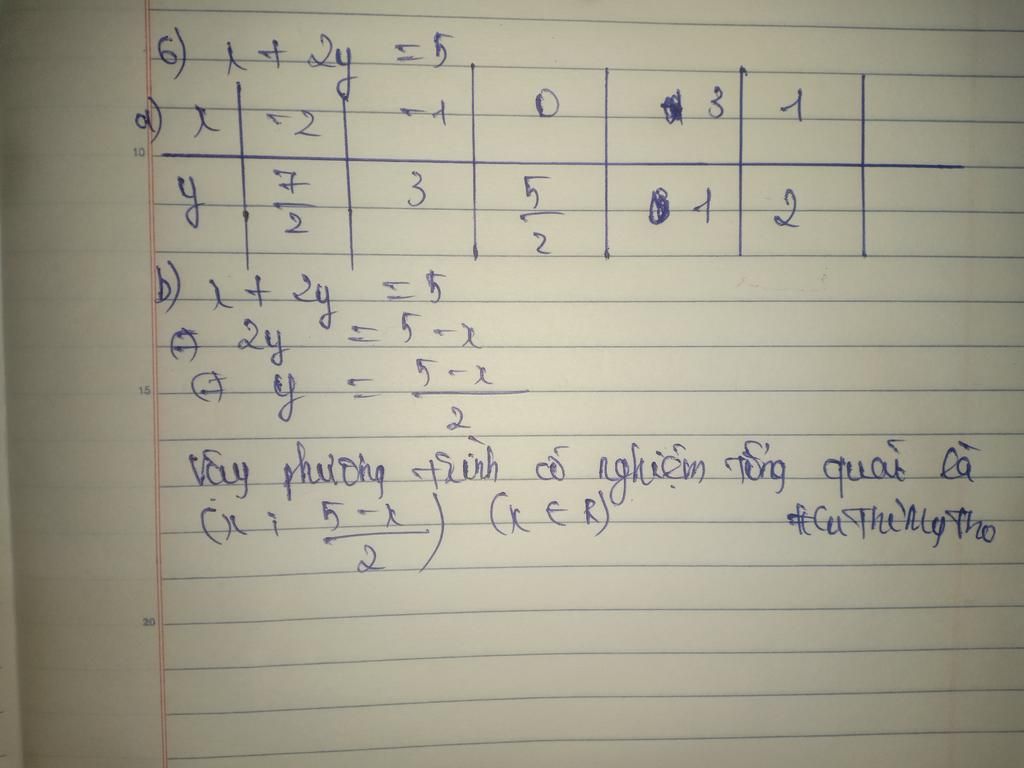 6) x + 2y = 5
a) x -2 -1 0 3 1
10
y 7/2 3 5/2 1 2
b) x + 2y = 5
⇔ 2y = 5 - x
15
⇔ y = (5 - x)/2
Vậy phương trình có nghiệm tổng quát là
(x ; (5 - x)/2) (x ∈ R) #CuThiMyTho
20